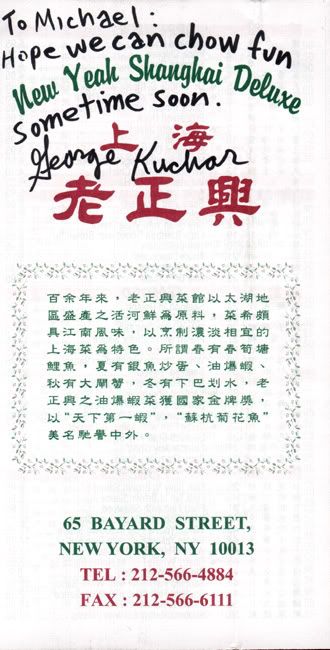 To Michael:
Hope we can chow fun
New Yeah Shanghai Deluxe
sometime soon.
上海
George Kuchar
老正興
百余年來，老正興菜館以太湖地
區盛產之活河鮮為原料，菜希頗
具江南風味，以烹制濃淡相宜的
上海菜爲特色。所謂春有春筍塘
鯉魚，夏有銀魚炒蛋、油爆蝦、
秋有大閘蟹，冬有下巴划水，老
正興之油爆蝦菜獲國家金牌獎，
以“天下第一蝦”，“蘇杭菊花魚”
美名馳譽中外。
65 BAYARD STREET,
NEW YORK, NY 10013
TEL : 212-566-4884
FAX : 212-566-6111